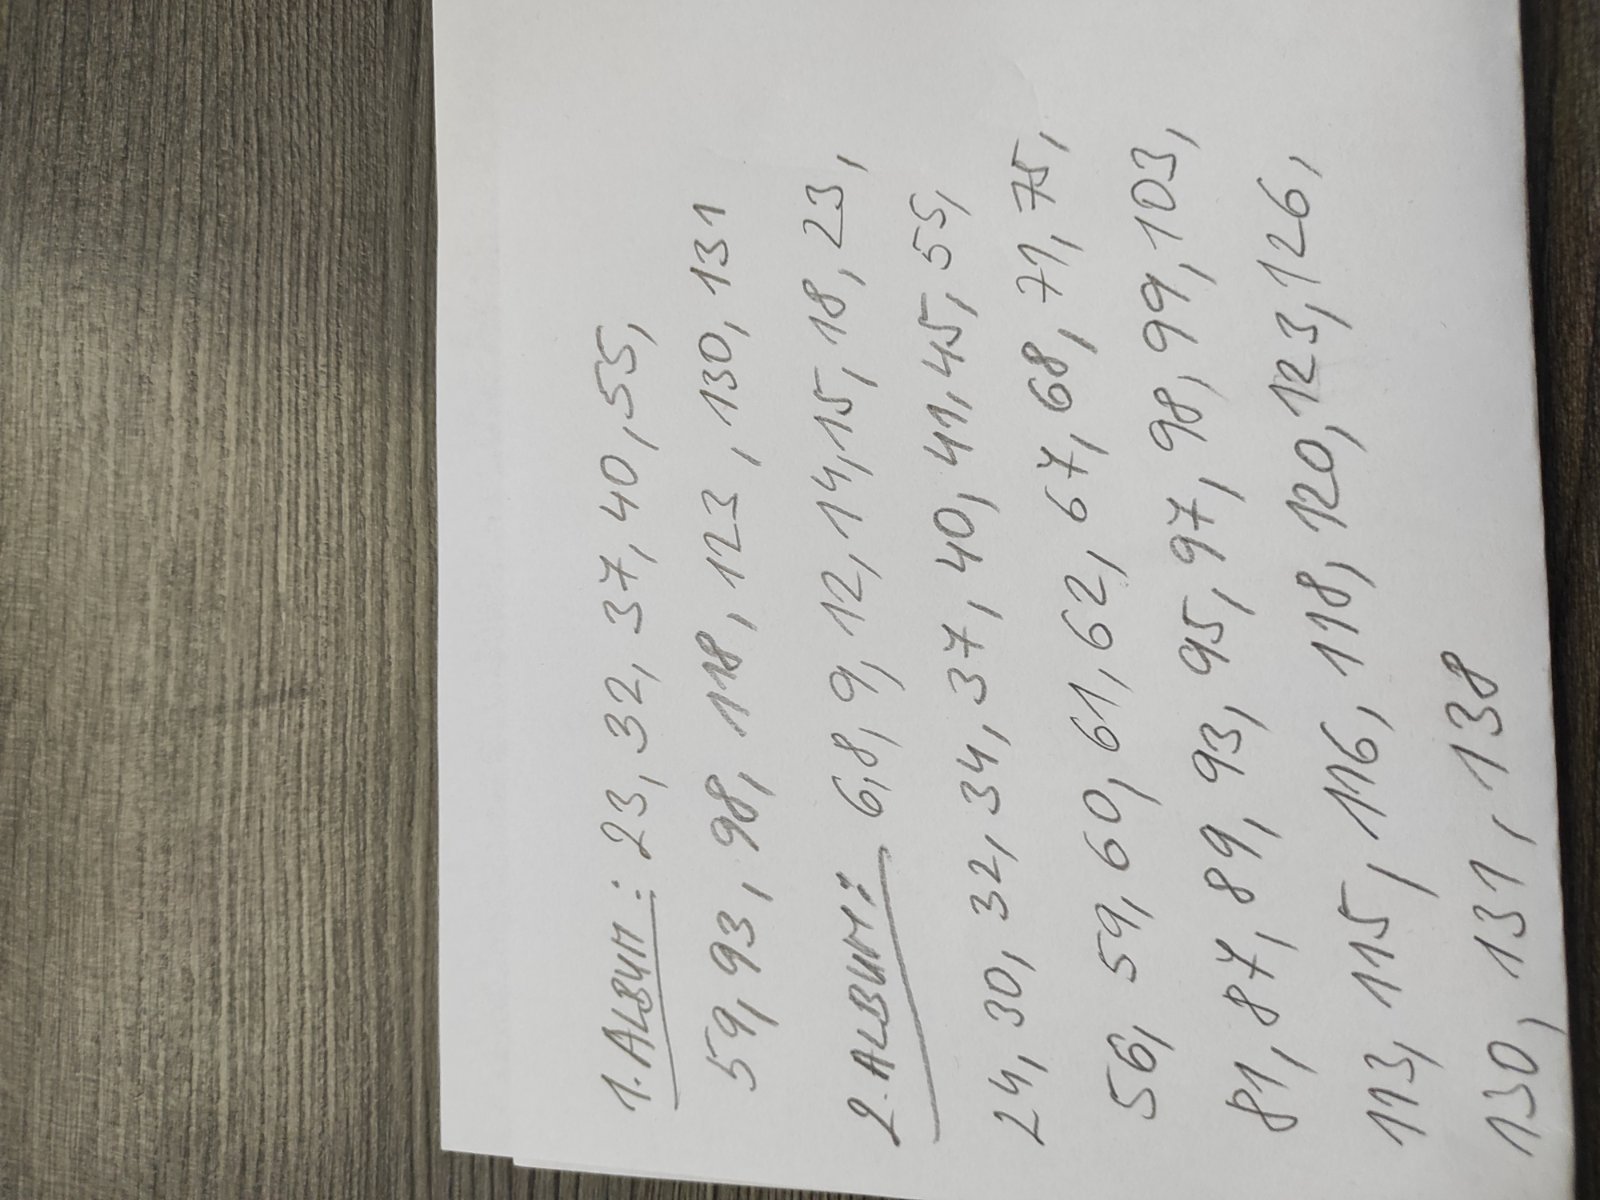 1. ALBUM: 23, 32, 37, 40, 55,
59, 93, 98, 118, 123, 130, 131
2. ALBUM: 6, 8, 9, 12, 14, 15, 18, 23,
24, 30, 32, 34, 37, 40, 41, 45, 55,
56, 59, 60, 61, 62, 67, 68, 71, 75,
81, 87, 89, 93, 95, 97, 98, 99, 103,
113, 115, 116, 118, 120, 123, 126,
130, 131, 138